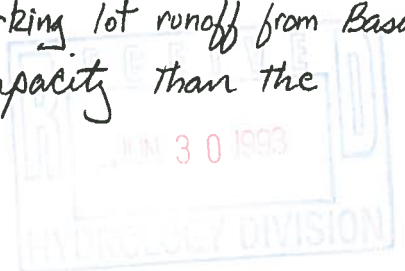 rking lot runoff from Basi
pacity than the
RECEIVED
JUN 30 1993
HYDROLOGY DIVISION